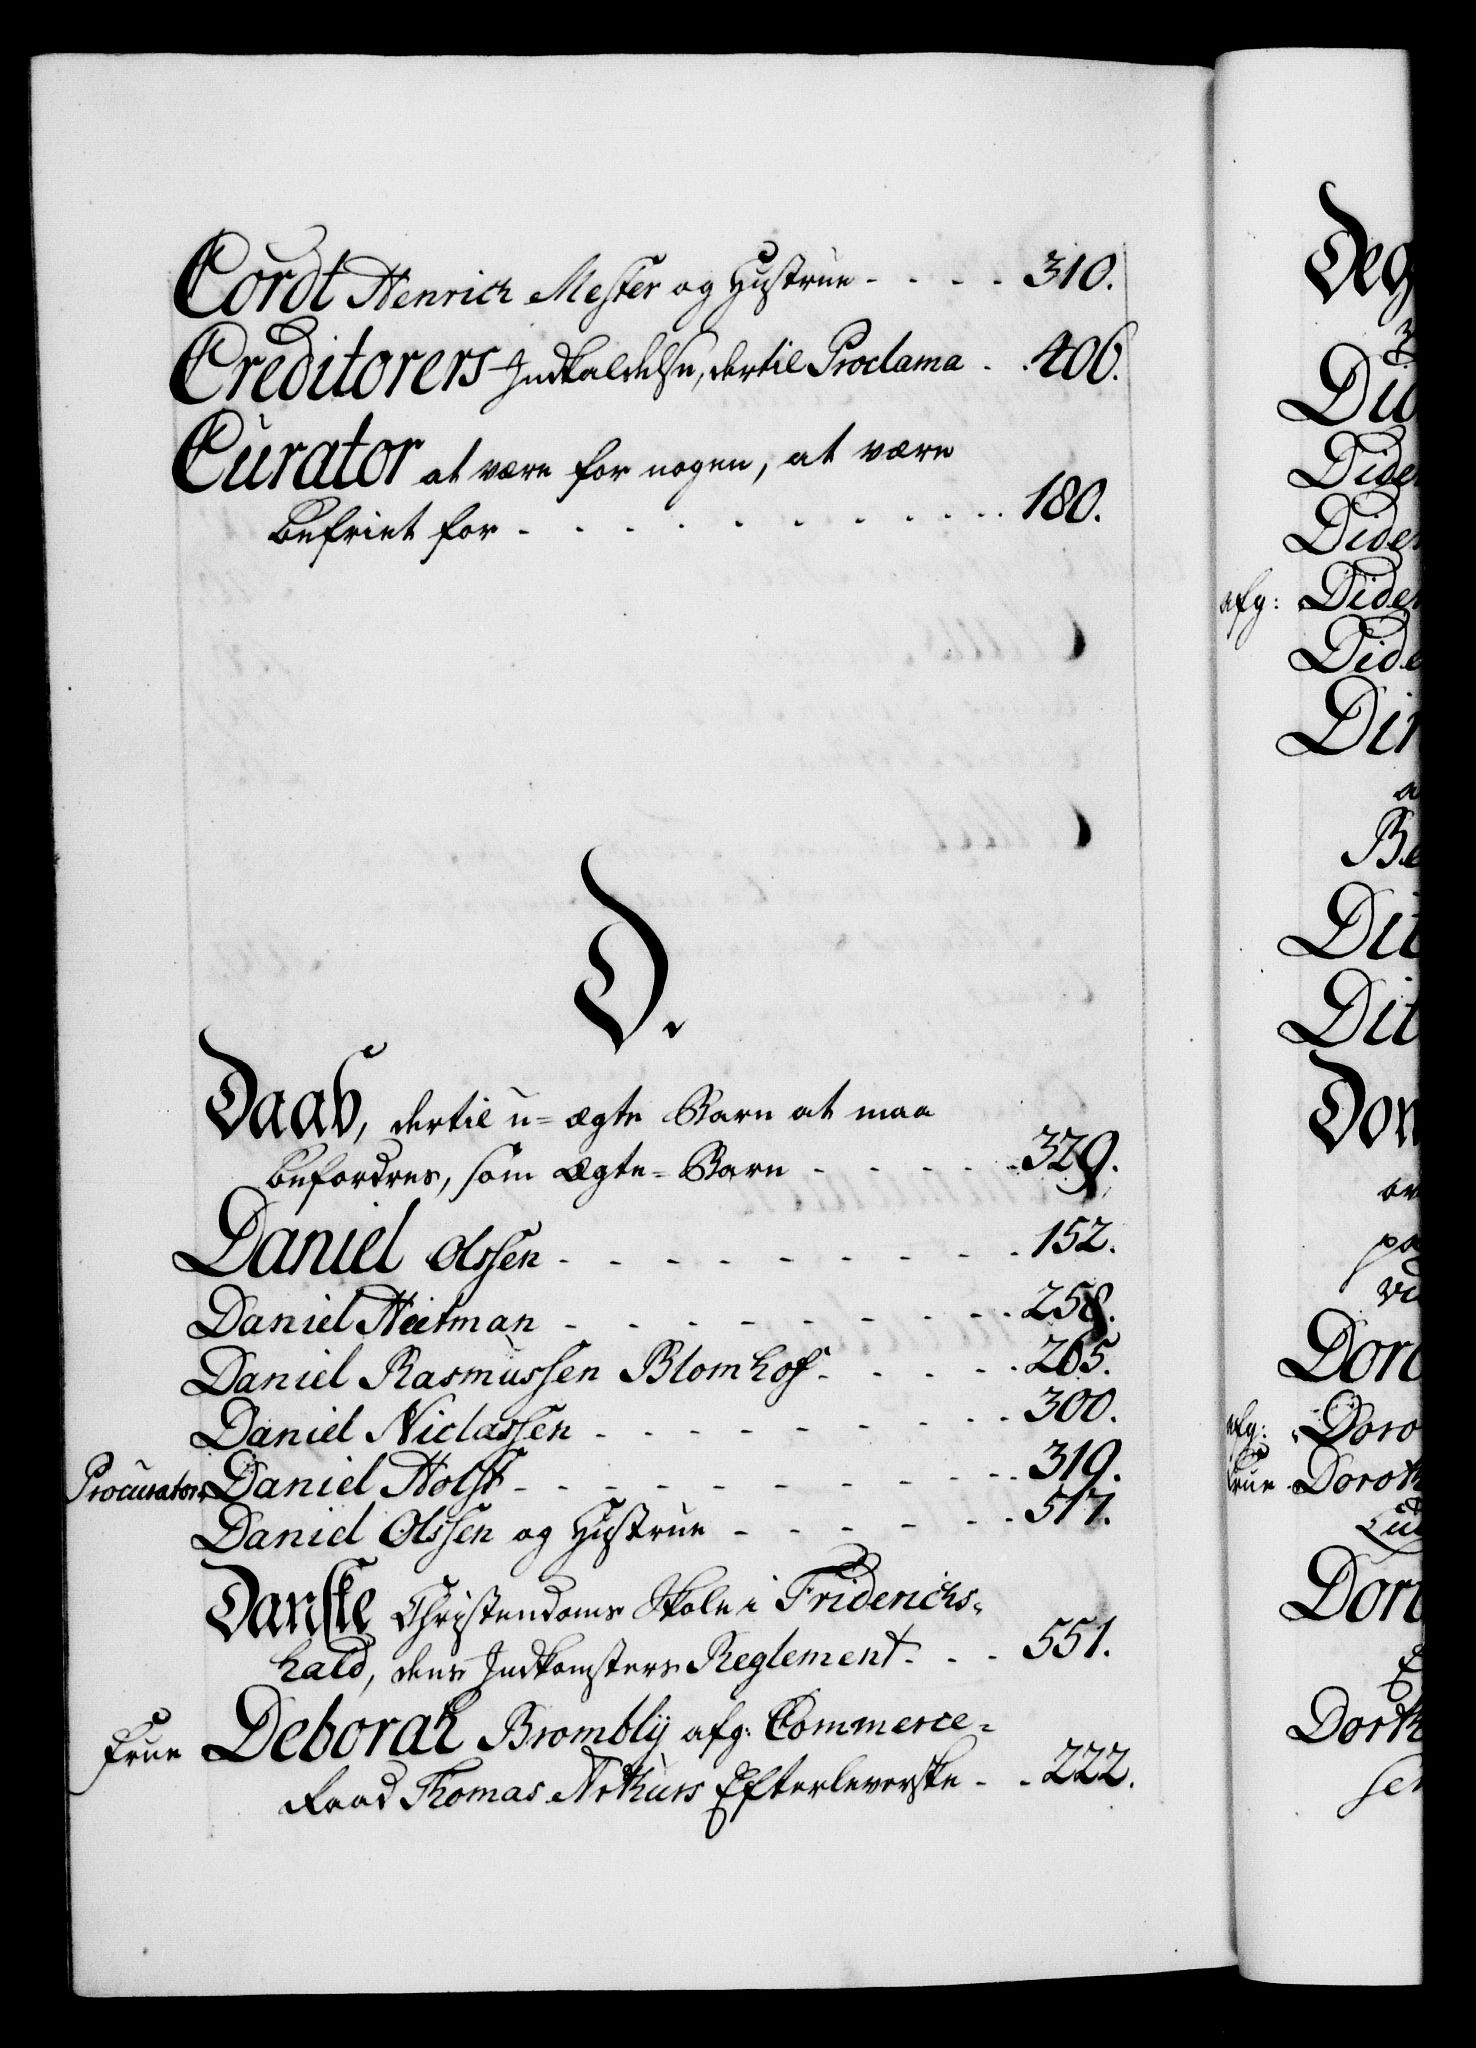 Cordt Henrich Mester og Hustrue - - - - 310.
Creditorers Indkaldelse, dertil Proclama - . 406.
Curator at være for nogen, at være
befriet for - - - - - - - - - 180.
D.
Daab, dertil u-ægte Barn at maa
befordres, som Ægte-Barn - - - - - 329.
Daniel Olssen - - - - - - - - 152.
Daniel Heitman - - - - - - - - 258.
Daniel Rasmussen Blomhof - - - - 265.
Daniel Niclassen - - - - - - - - 300.
Procurator Daniel Holst - - - - - - - - 319.
Daniel Olssen og Hustrue - - - - - - 517.
Danske Christendoms Skole i Friderichs-
hald, dens Indkomsters Reglement - - - 551.
Frue Deborah Brombly afg: Commerce-
Raad Thomas Arthurs Efterleverske - . 222.
Deg
Did
Dider
Dider
afg: Dider
Dide
Dir
a
Be
Dit
Dit
Dom
po
Doro
afg: Doro
Frue Doroth
Lud
Doro
Doroth
sen